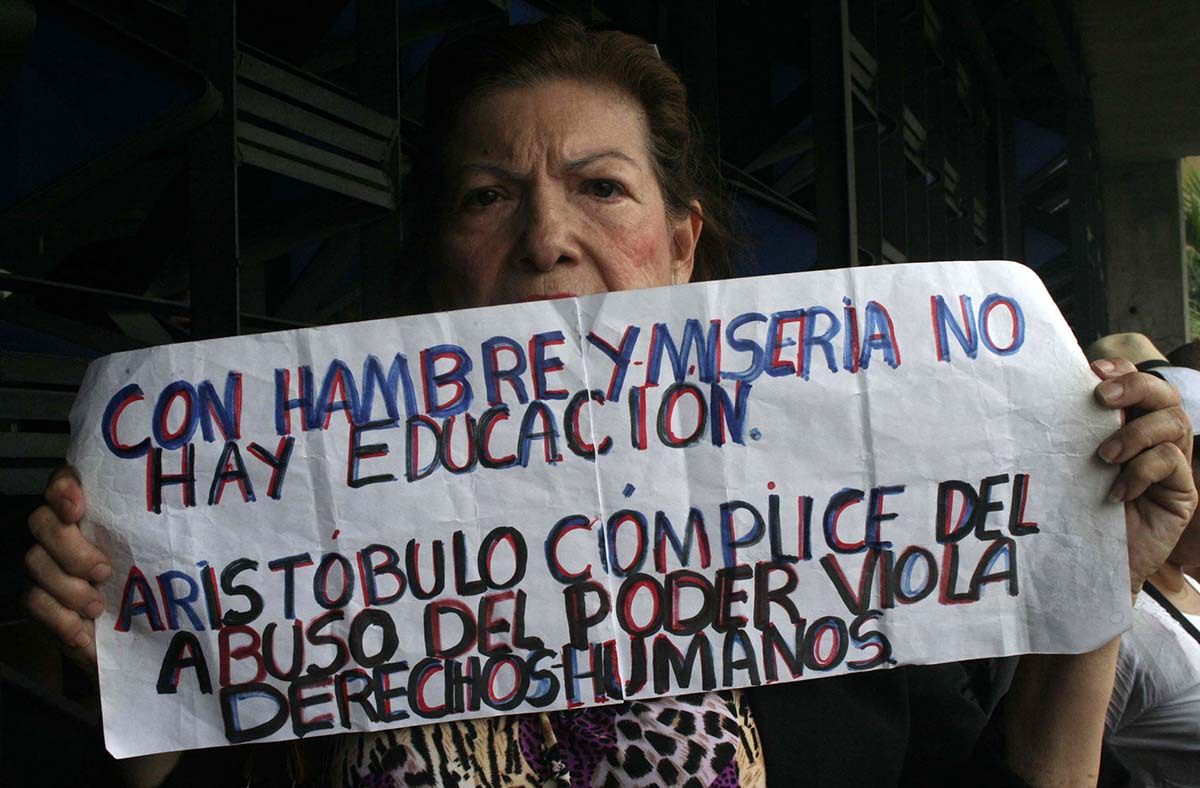 CON HAMBRE Y MISERIA NO
HAY EDUCACIÓN.
ARISTÓBULO CÓMPLICE DEL
ABUSO DEL PODER VIOLA
DERECHOS HUMANOS